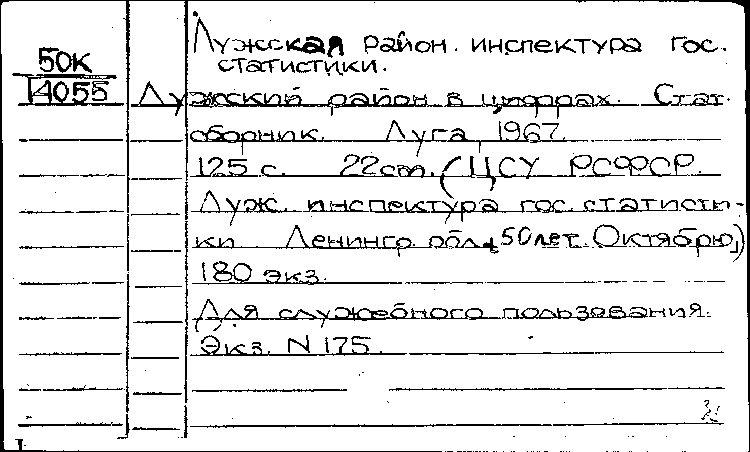 Лужская район. инспектура гос.
статистики.
50К
14055
Лужский район в цифрах. Стат.
сборник. Луга, 1967.
125 с. 22 см. (ЦСУ РСФСР.
Луж. инспектура гос. статисти-
ки Ленингр. обл. 50 лет Октябрю)
180 экз.
Для служебного пользования.
Экз. N 175.